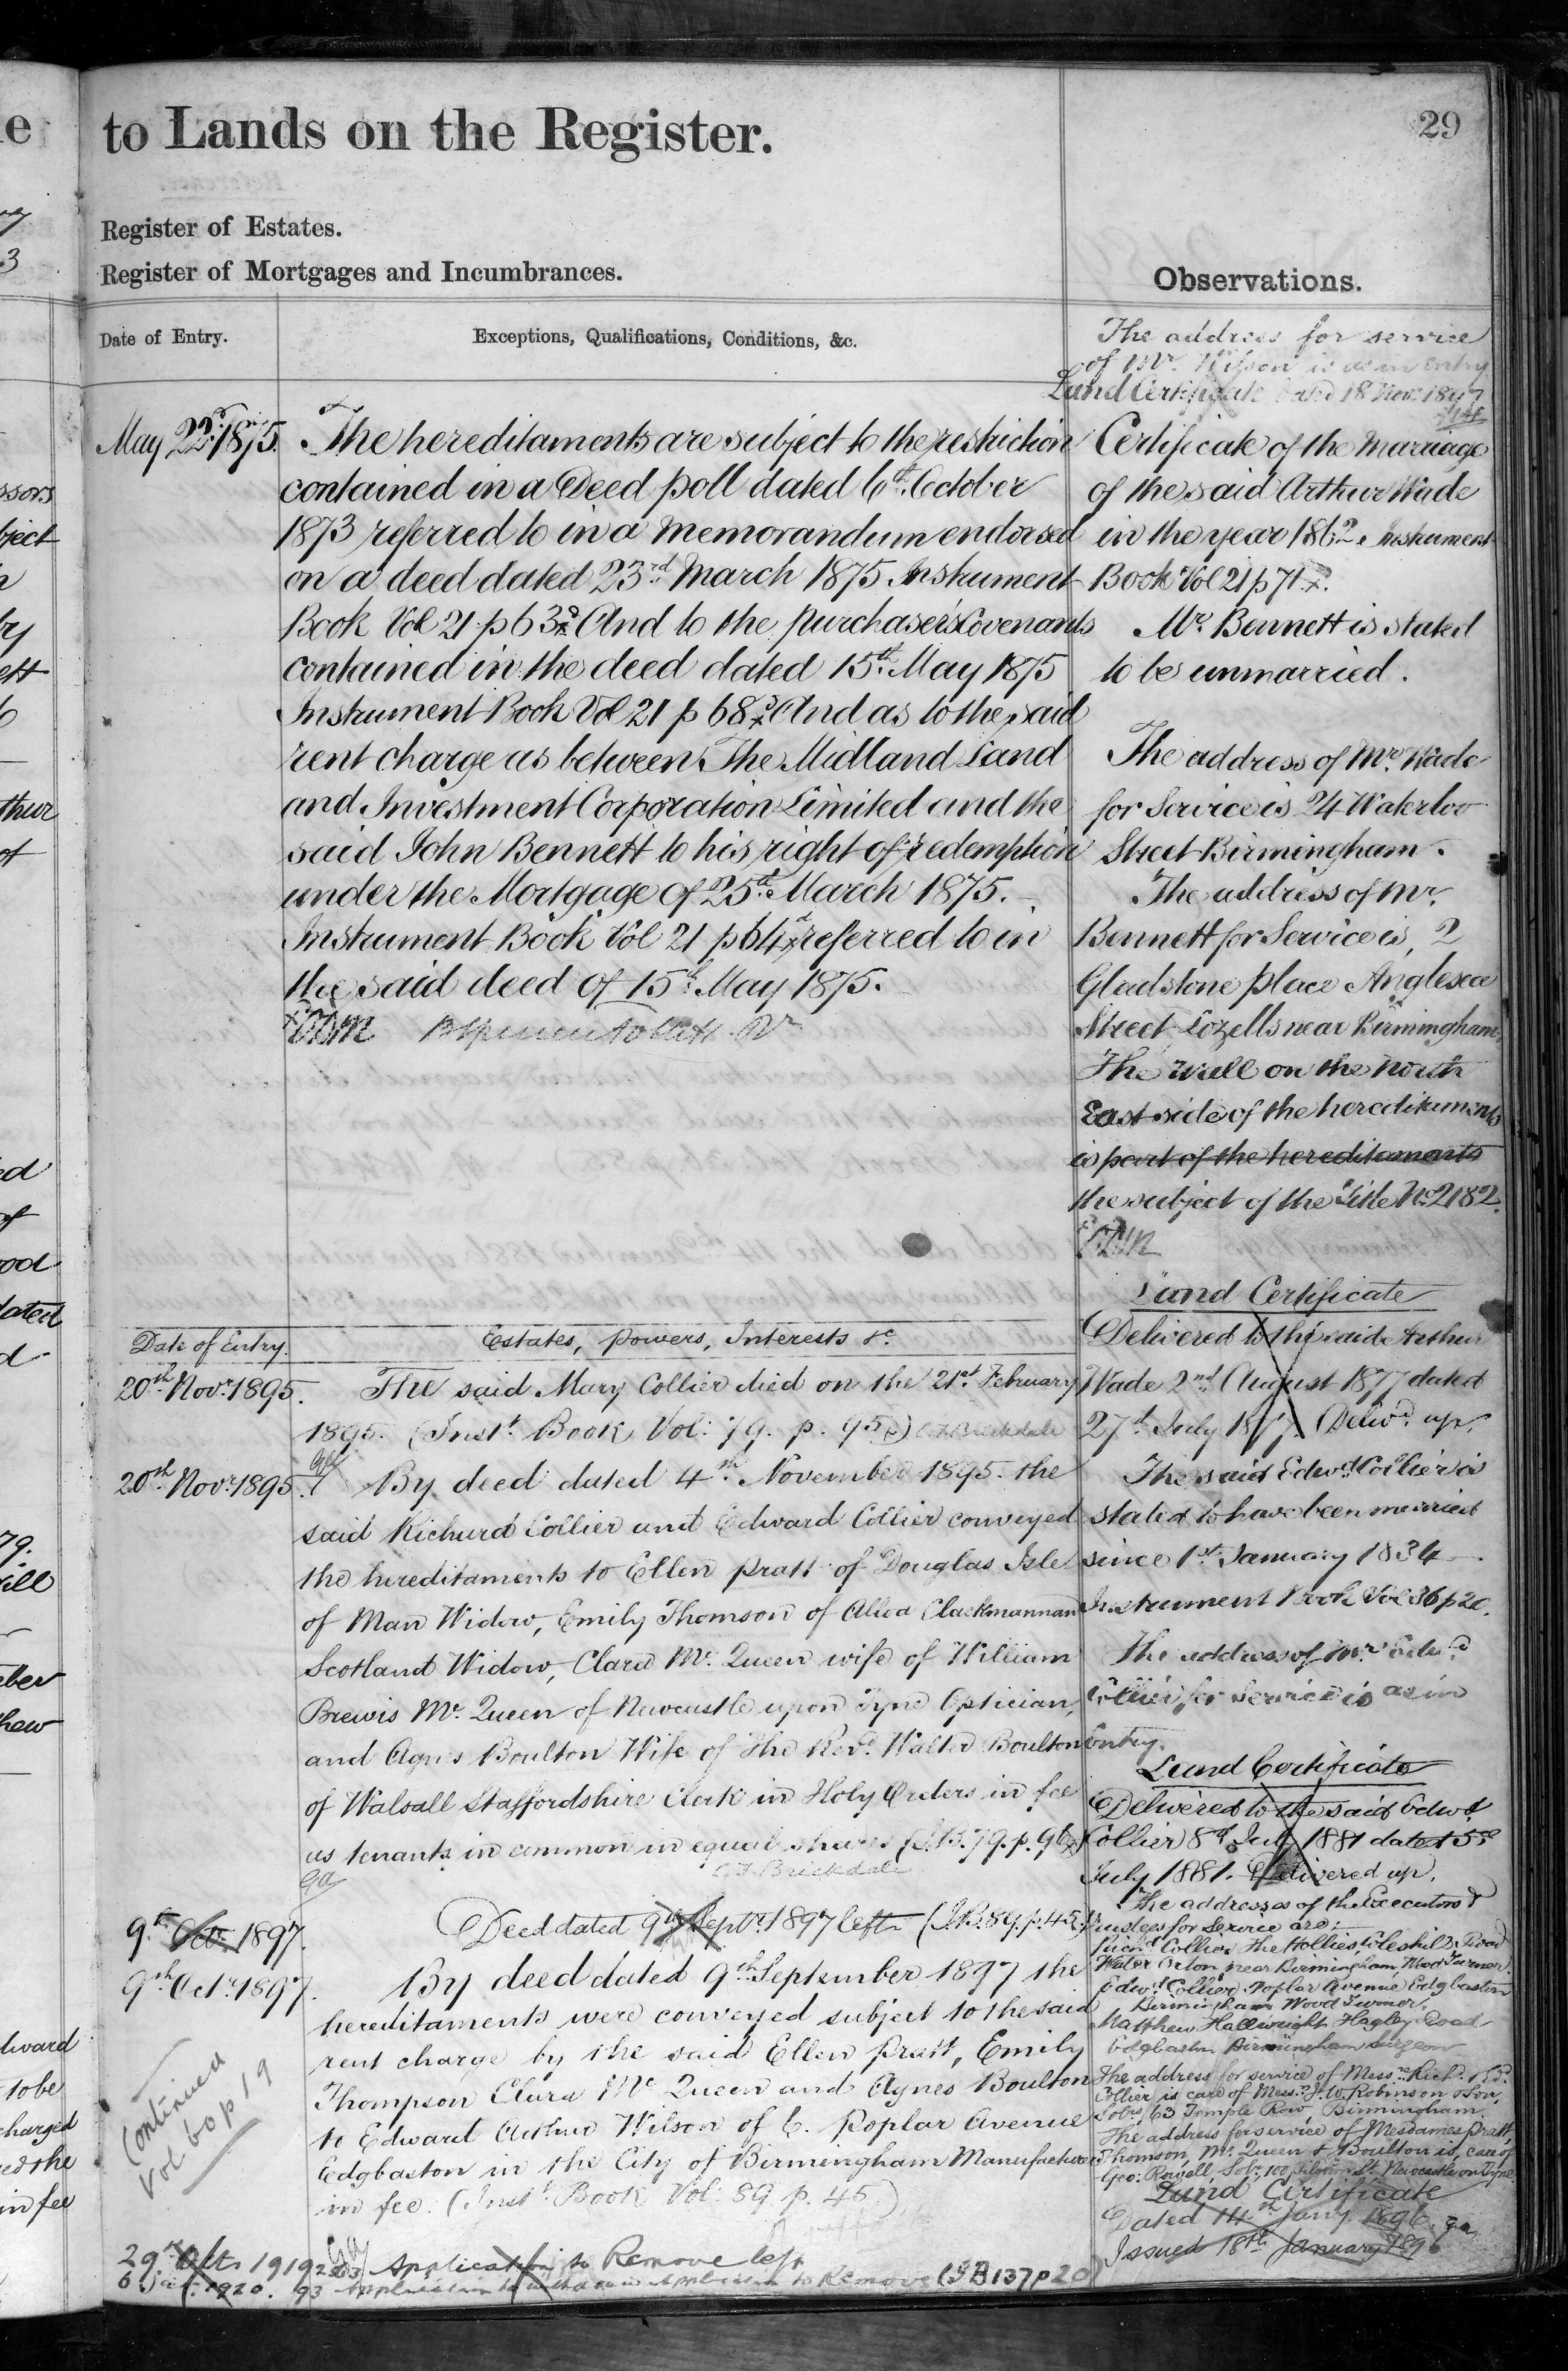 to Lands on the Register.
29
Register of Estates.
Register of Mortgages and Incumbrances.
Observations.
Date of Entry.
Exceptions, Qualifications, Conditions, &c.
May 22nd 1875.
The hereditaments are subject to the restriction
contained in a Deed poll dated 6th October
1873 referred to in a Memorandum endorsed
on a deed dated 23rd March 1875 Instrument
Book Vol 21 p 63 And to the purchasers Covenants
contained in the deed dated 15th May 1875
Instrument Book Vol 21 p 68 And as to the said
rent charge as between The Midland Land
and Investment Corporation Limited and the
said John Bennett to his right of redemption
under the Mortgage of 25th March 1875.
Instrument Book Vol 21 p 64 referred to in
the said deed of 15th May 1875.
Date of Entry.
Estates, powers, Interests &c.
20th Novr. 1895.
The said Mary Collier died on the 21st February
1895. (Inst. Book Vol: 79. p. 95) C F Brickdale
20th Novr. 1895.
By deed dated 4th November 1895. the
said Richard Collier and Edward Collier conveyed
the hereditaments to Ellen Pratt of Douglas Isle
of Man Widow, Emily Thomson of Alloa Clackmannan
Scotland Widow, Clara Mc. Queen wife of William
Brewis Mc. Queen of Newcastle upon Tyne Optician,
and Agnes Boulton Wife of The Revd. Walter Boulton
of Walsall Staffordshire Clerk in Holy Orders in fee
as tenants in common in equal shares (I.B. 79. p. 96)
C F Brickdale
9th Octr. 1897.
Deed dated 9th Septr. 1897 left (I.B. 89. p. 45)
9th Octr. 1897.
By deed dated 9th September 1897 the
hereditaments were conveyed subject to the said
rent charge by the said Ellen Pratt, Emily
Thompson Clara Mc Queen and Agnes Boulton
to Edward Arthur Wilson of 6. Poplar Avenue
Edgbaston in the City of Birmingham Manufacturer
in fee. (Inst. Book Vol: 89. p. 45)
Continued
Vol 60 p 19
29th Octr 1919
Application to Remove left
1920. 93 Application to withdraw Application to Remove (IB 137 p 20)
The address for service
of Mr. Wilson is as in Entry
Land Certificate dated 18 Novr. 1897
Certificate of the Marriage
of the said Arthur Wade
in the year 1862 Instrument
Book Vol 21 p 71.
Mr. Bennett is stated
to be unmarried.
The address of Mr. Wade
for Service is 24 Waterloo
Street Birmingham.
The address of Mr.
Bennett for Service is, 2
Gladstone place Anglesea
Street Lozells near Birmingham.
The wall on the North
East side of the hereditaments
is part of the hereditaments
the subject of the Title No. 2182.
Land Certificate
Delivered to the said Arthur
Wade 2nd August 1877 dated
27th July 1877. Delivd. up.
The said Edwd. Collier is
stated to have been married
since 1st January 1834.
Instrument Book Vol 36 p 20.
The address of Mr. Edwd.
Collier for Service is as in
Entry.
Land Certificate
Delivered to the said Edwd.
Collier 8th July 1881 dated 5th
July 1881. Delivered up.
The addresses of the Executors &
Trustees for Service are:
Richd. Collier The Hollies, Coleshill Road
Water Orton near Birmingham, Wood Turner.
Edwd. Collier Poplar Avenue Edgbaston
Birmingham Wood Turner.
Matthew Hallwright Hagley Road
Edgbaston Birmingham Surgeon
The address for service of Messrs. Richd. & Ed.
Collier is care of Messrs. J. W. Robinson & Son,
Solrs. 63 Temple Row, Birmingham
The address for service of Mesdames Pratt,
Thomson, Mc. Queen & Boulton is, care of
Geo: Rowell, Solr. 100 Pilgrim St. Newcastle on Tyne
Land Certificate
Dated 14th Jany. 1896.
Issued 18th January 1896